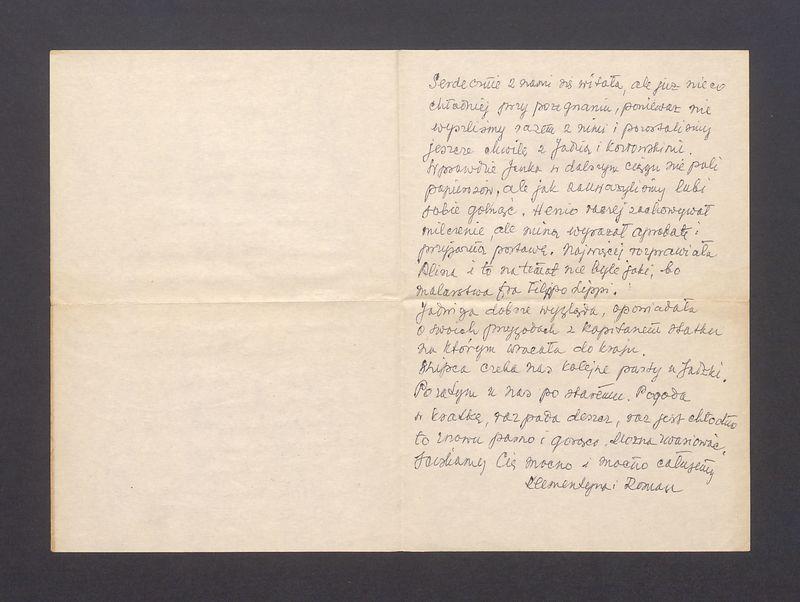 Serdecznie z nami się witała, ale już nieco
chłodniej przy pożegnaniu, ponieważ nie
wyszliśmy razem z nimi i pozostaliśmy
jeszcze chwilę z Jadzią i
Wprawdzie Janka w dalszym ciągu nie pali
papierosów, ale jak zauważyliśmy lubi
sobie golnąć. Henio raczej zachowywał
milczenie, ale miną wyrażał aprobatę i
przyjazną postawę. Najwięcej rozprawiała
Alina i to na temat nie byle jaki, bo
malarstwa fra Filippo Lippi.
Jadwiga dobrze wygląda, opowiadała
o swoich przygodach z kapitanem statku
na którym wracała do kraju.
lipca czeka nas kolejne party u Jadzki.
Poza tym u nas po staremu. Pogoda
w kratkę, raz pada deszcz, raz jest chłodno
to znowu parno i gorąco. Można zwariować.
Ściskamy Cię mocno i mocno całujemy
Klementyna i Roman